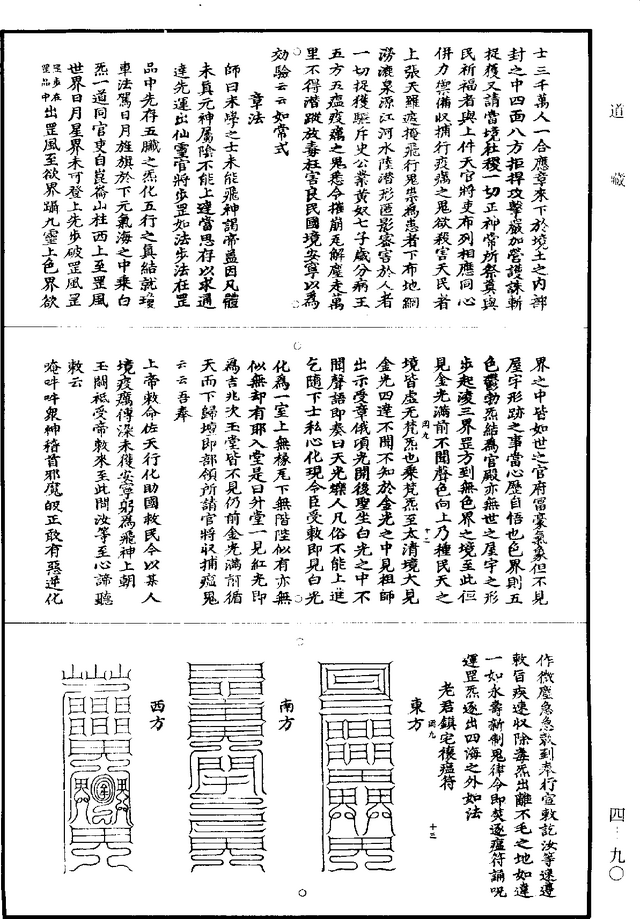 道藏
士三千萬人一合應章來下於境土之內部
封之中四面八方拒捍攻擊嚴加營護誅斬
捉獲又請當境社稷一切正神常所祭奠與
民祈福者與上件天官將吏布列相應同心
併力禦備收捕行疫癘之鬼欲殺害天民者
上張天羅遮掩飛行鬼祟為患者下布地網
澇漉泉源江河水陸潛形匿影客害於人者
一切捉獲驅斥史公業黃奴七子歲分病王
五方五瘟疫癘之鬼悉令摧崩瓦解塵走萬
里不得潛蹤放毒枉害良民國境安寧以為
効驗云云如常式
章法
師曰末學之士未能飛神謁帝蓋因凡體
未真元神屬陰不能上達當思存以求通
達先運出仙靈官將步罡如法步法在罡
品中先存五臟之炁化五行之真結就瓊
車法駕日月旌旗於下元氣海之中乘白
炁一道同官吏自崑崙山柱西上至罡風
世界日月星界未可登上先步破罡風罡
罡步在罡品中出罡風至欲界躡九靈上色界欲
界之中皆如世之官府冨豪氣象但不見
屋宇形跡之事當心歷自悟也色界則五
色鬱勃炁結為宮殿亦無世之屋宇之形
步起凌三界罡方到無色界之境至此但
見金光滿前不聞聲色向上乃種民天之
境皆虛无梵炁也乘梵炁至太清境大見
金光四達不聞不知於金光之中見祖師
出示受章俄頃光開後聖坐白光之中不
聞聲語即奏曰天光爍人凡俗不能上進
乞随下士私心化現令臣受敕即見白光
化為一室上無椽瓦下無階陛似有亦無
似無却有耶入堂是曰升堂一見紅光即
為吉兆次玉堂皆不見仍前金光滿討循
天而下歸壇即部領所請官將收捕瘟鬼
云云吾奉
上帝敕命佐天行化助國救民今以某人
境疫癘傳染未獲安寧躬為飛神上朝
玉闕祗受帝敕來至此間汝等至心諦聽
敕云
唵吽吽眾神稽首邪魔皈正敢有惡逆化
作微塵急急敕到奉行宣敕訖汝等速遵
敕旨疾速收除毒炁出離不毛之地如違
一如永壽新制鬼律令即焚逐瘟符誦呪
運罡炁逐出四海之外如法
老君鎮宅禳瘟符
東方
南方
西方
四九
十二
四九
十三
四–九〇